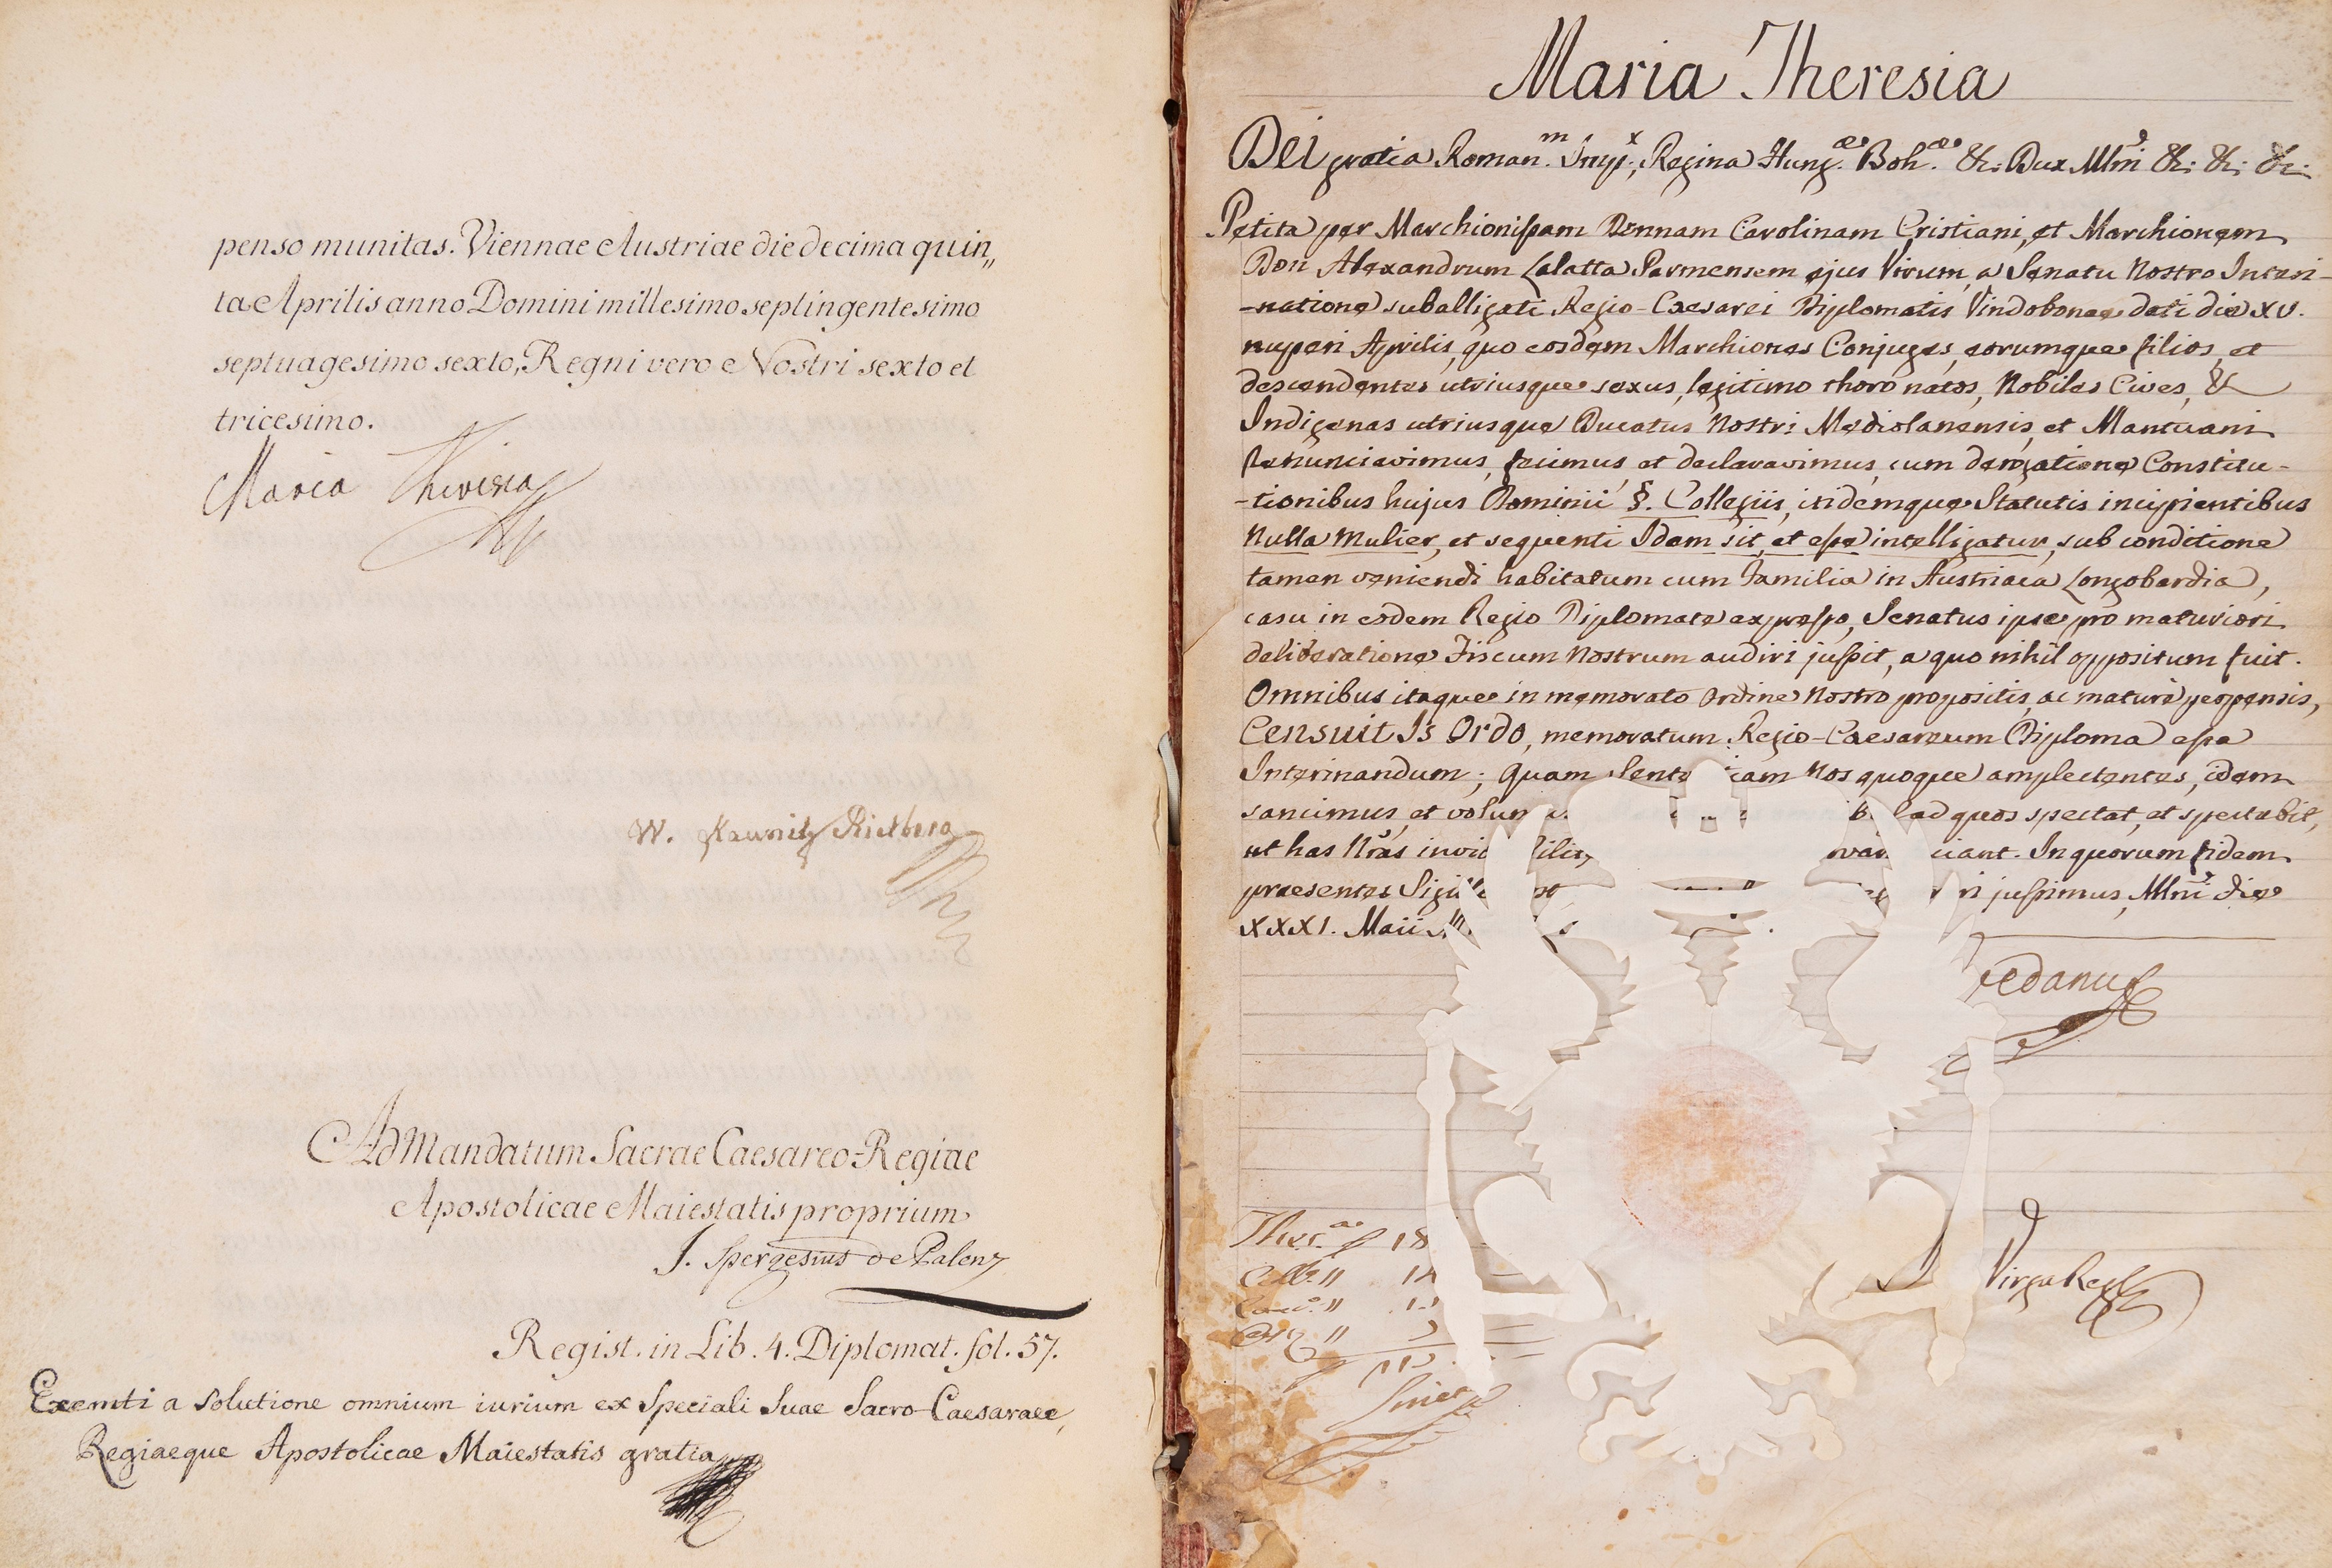 penso munitas. Viennae Austriae die decima quin„
ta Aprilis anno Domini millesimo septingentesimo
septuagesimo sexto, Regni vero Nostri sexto et
tricesimo.
Maria Theresia
W. Kaunitz Rietberg
Ad Mandatum Sacrae Caesareo-Regiae
Apostolicae Maiestatis proprium
J. Spergesius de Palenz
Regist. in Lib. 4. Diplomat. fol. 57.
Exemti a solutione omnium iurium ex Speciali Suae Sacro-Caesareae,
Regiaeque Apostolicae Maiestatis gratia
Maria Theresia
Dei gratia Roman.m Imp.x, Regina Hung.ae Boh.ae &c: Dux Mlni &c: &c: &c:
Petita per Marchionissam Donnam Carolinam Cristiani, et Marchionem
Don Alexandrum Lalatta Parmensem ejus Virum, a Senatu Nostro Interi-
-natione suballigati Regio-Caesarei Diplomatis Vindobonae dati die XV.
nuperi Aprilis, quo eosdem Marchiones Conjuges, eorumque filios, et
descendentes utriusque sexus, legitimo thoro natos, Nobiles Cives, &
Indigenas utriusque Ducatus Nostri Mediolanensis, et Mantuani
renunciavimus, fecimus, et declaravimus, cum derogatione Constitu-
-tionibus hujus Dominii §. Collegiis, itidemque Statutis incipientibus
Nulla Mulier, et sequenti Idem sit, et esse intelligatur, sub conditione
tamen veniendi habitatum cum Familia in Austriaca Longobardia,
casu in eodem Regio Diplomate expresso, Senatus ipse pro maturiori
deliberatione Fiscum Nostrum audiri jussit, a quo nihil oppositum fuit.
Omnibus itaque in memorato Ordine Nostro propositis, ac maturè perpensis,
Censuit Is Ordo, memoratum Regio-Caesareum Diploma esse
Interinandum; Quam Sente iam Nos quoque amplectentes, idem
sancimus, et volum ad quos spectat, et spectabit,
ut has Nras invio ciant. In quorum fidem
praesentes Sigil ri jussimus, Mlni die
XXXI. Maii
edanus
Virga Regs